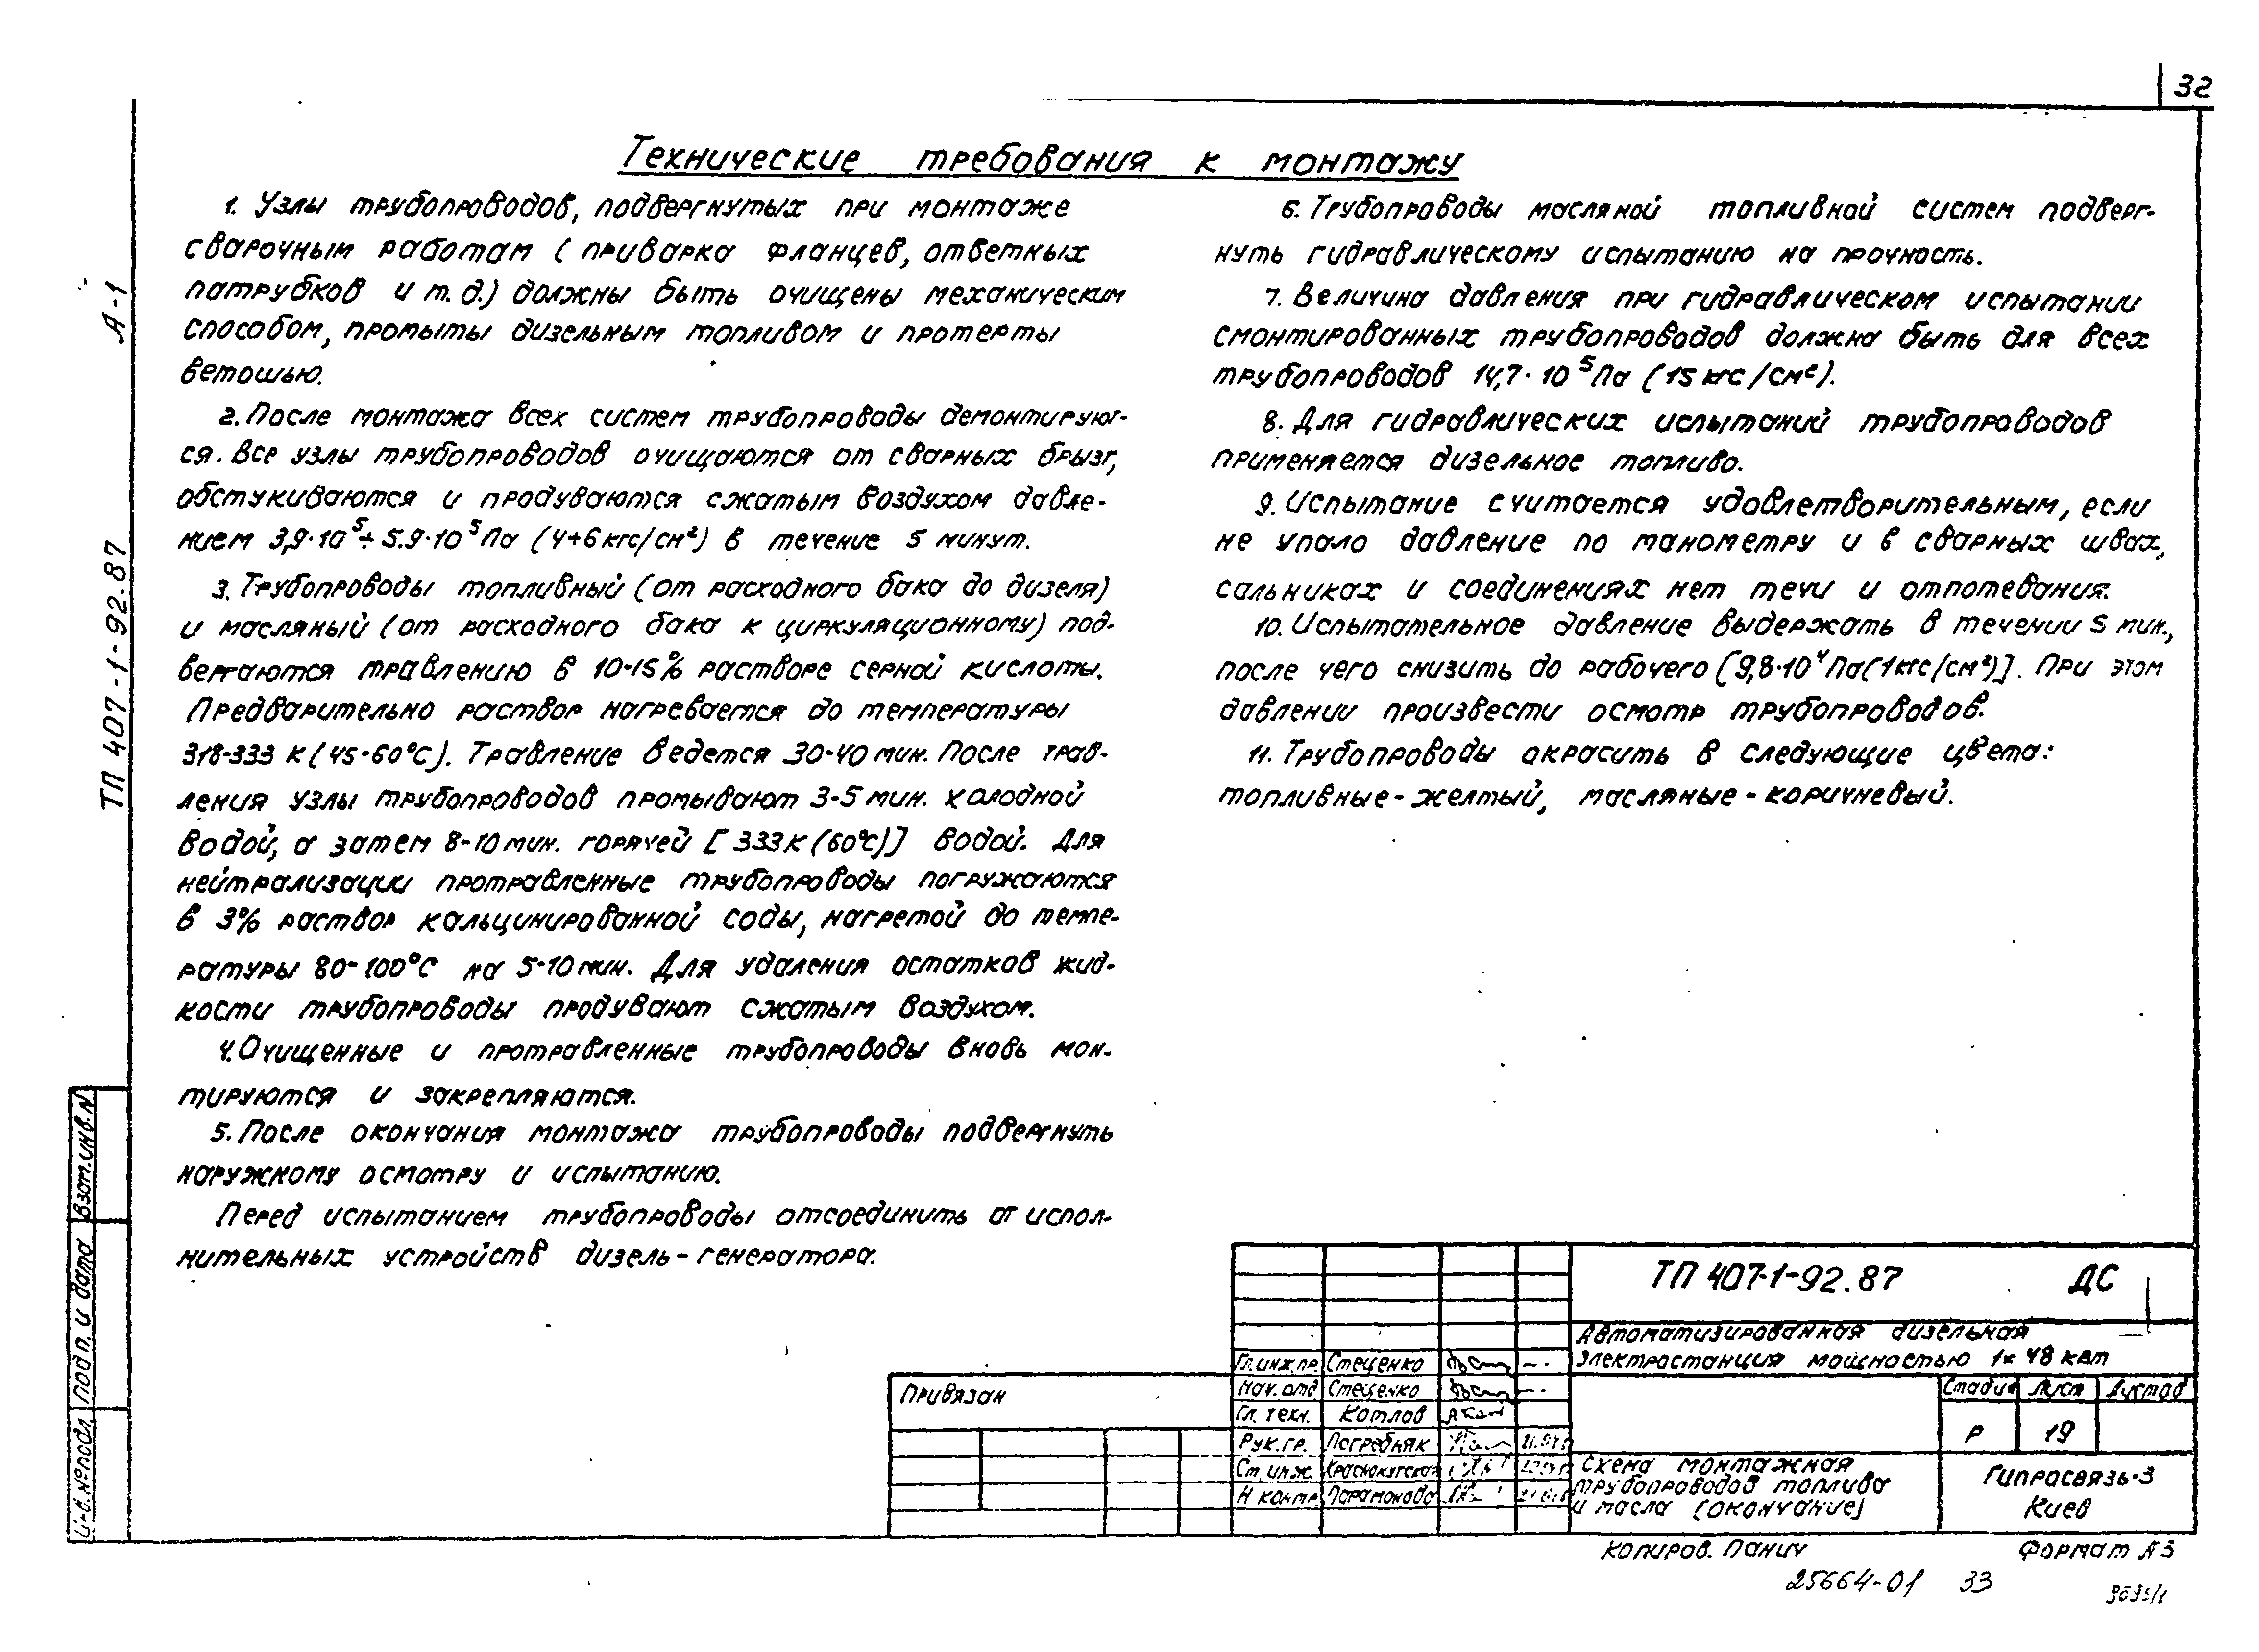 32
Технические требования к монтажу
1. Узлы трубопроводов, подвергнутых при монтаже
сварочным работам (приварка фланцев, ответных
патрубков и т.д.) должны быть очищены механическим
способом, промыты дизельным топливом и протерты
ветошью.
2. После монтажа всех систем трубопроводы демонтируют-
ся. Все узлы трубопроводов очищаются от сварных брызг,
обстукиваются и продуваются сжатым воздухом давле-
нием 3,9·10⁵÷5.9·10⁵Па (4÷6кгс/см²) в течение 5 минут.
3. Трубопроводы топливный (от расходного бака до дизеля)
и масляный (от расходного бака к циркуляционному) под-
вергаются травлению в 10-15% растворе серной кислоты.
Предварительно раствор нагревается до температуры
318-333 К (45-60°С). Травление ведется 30-40 мин. После трав-
ления узлы трубопроводов промывают 3-5 мин. холодной
водой, а затем 8-10 мин. горячей [333К (60°С)] водой. Для
нейтрализации протравленные трубопроводы погружаются
в 3% раствор кальцинированной соды, нагретой до темпе-
ратуры 80-100°С на 5-10 мин. Для удаления остатков жид-
кости трубопроводы продувают сжатым воздухом.
4. Очищенные и протравленные трубопроводы вновь мон-
тируются и закрепляются.
5. После окончания монтажа трубопроводы подвергнуть
наружному осмотру и испытанию.
Перед испытанием трубопроводы отсоединить от испол-
нительных устройств дизель-генератора.
6. Трубопроводы масляной топливной систем подверг-
нуть гидравлическому испытанию на прочность.
7. Величина давления при гидравлическом испытании
смонтированных трубопроводов должна быть для всех
трубопроводов 14,7·10⁵Па (15 кгс/см²).
8. Для гидравлических испытаний трубопроводов
применяется дизельное топливо.
9. Испытание считается удовлетворительным, если
не упало давление по манометру и в сварных швах,
сальниках и соединениях нет течи и отпотевания.
10. Испытательное давление выдержать в течении 5 мин.,
после чего снизить до рабочего [9,8·10⁴Па(1кгс/см²)]. При этом
давлении произвести осмотр трубопроводов.
11. Трубопроводы окрасить в следующие цвета:
топливные - желтый, масляные - коричневый.
ТП 407-1-92.87 А-1
Взам.инв.N
Подп. и дата
Инв.№подл
Привязан
Гл.инж.пр. Стеценко
Нач. отд Стеценко
Гл. техн. Котлов
Рук.гр. Погребняк
Ст.инж. Краснокутская
Н контр. Парамонова
ТП 407-1-92.87 ДС
Автоматизированная дизельная
электростанция мощностью 1х48 кВт
Стадия Лист Листов
Р 19
Схема монтажная
трубопроводов топлива
и масла (окончание)
Гипросвязь-3
Киев
Копиров. Панич Формат А3
25664-01 33